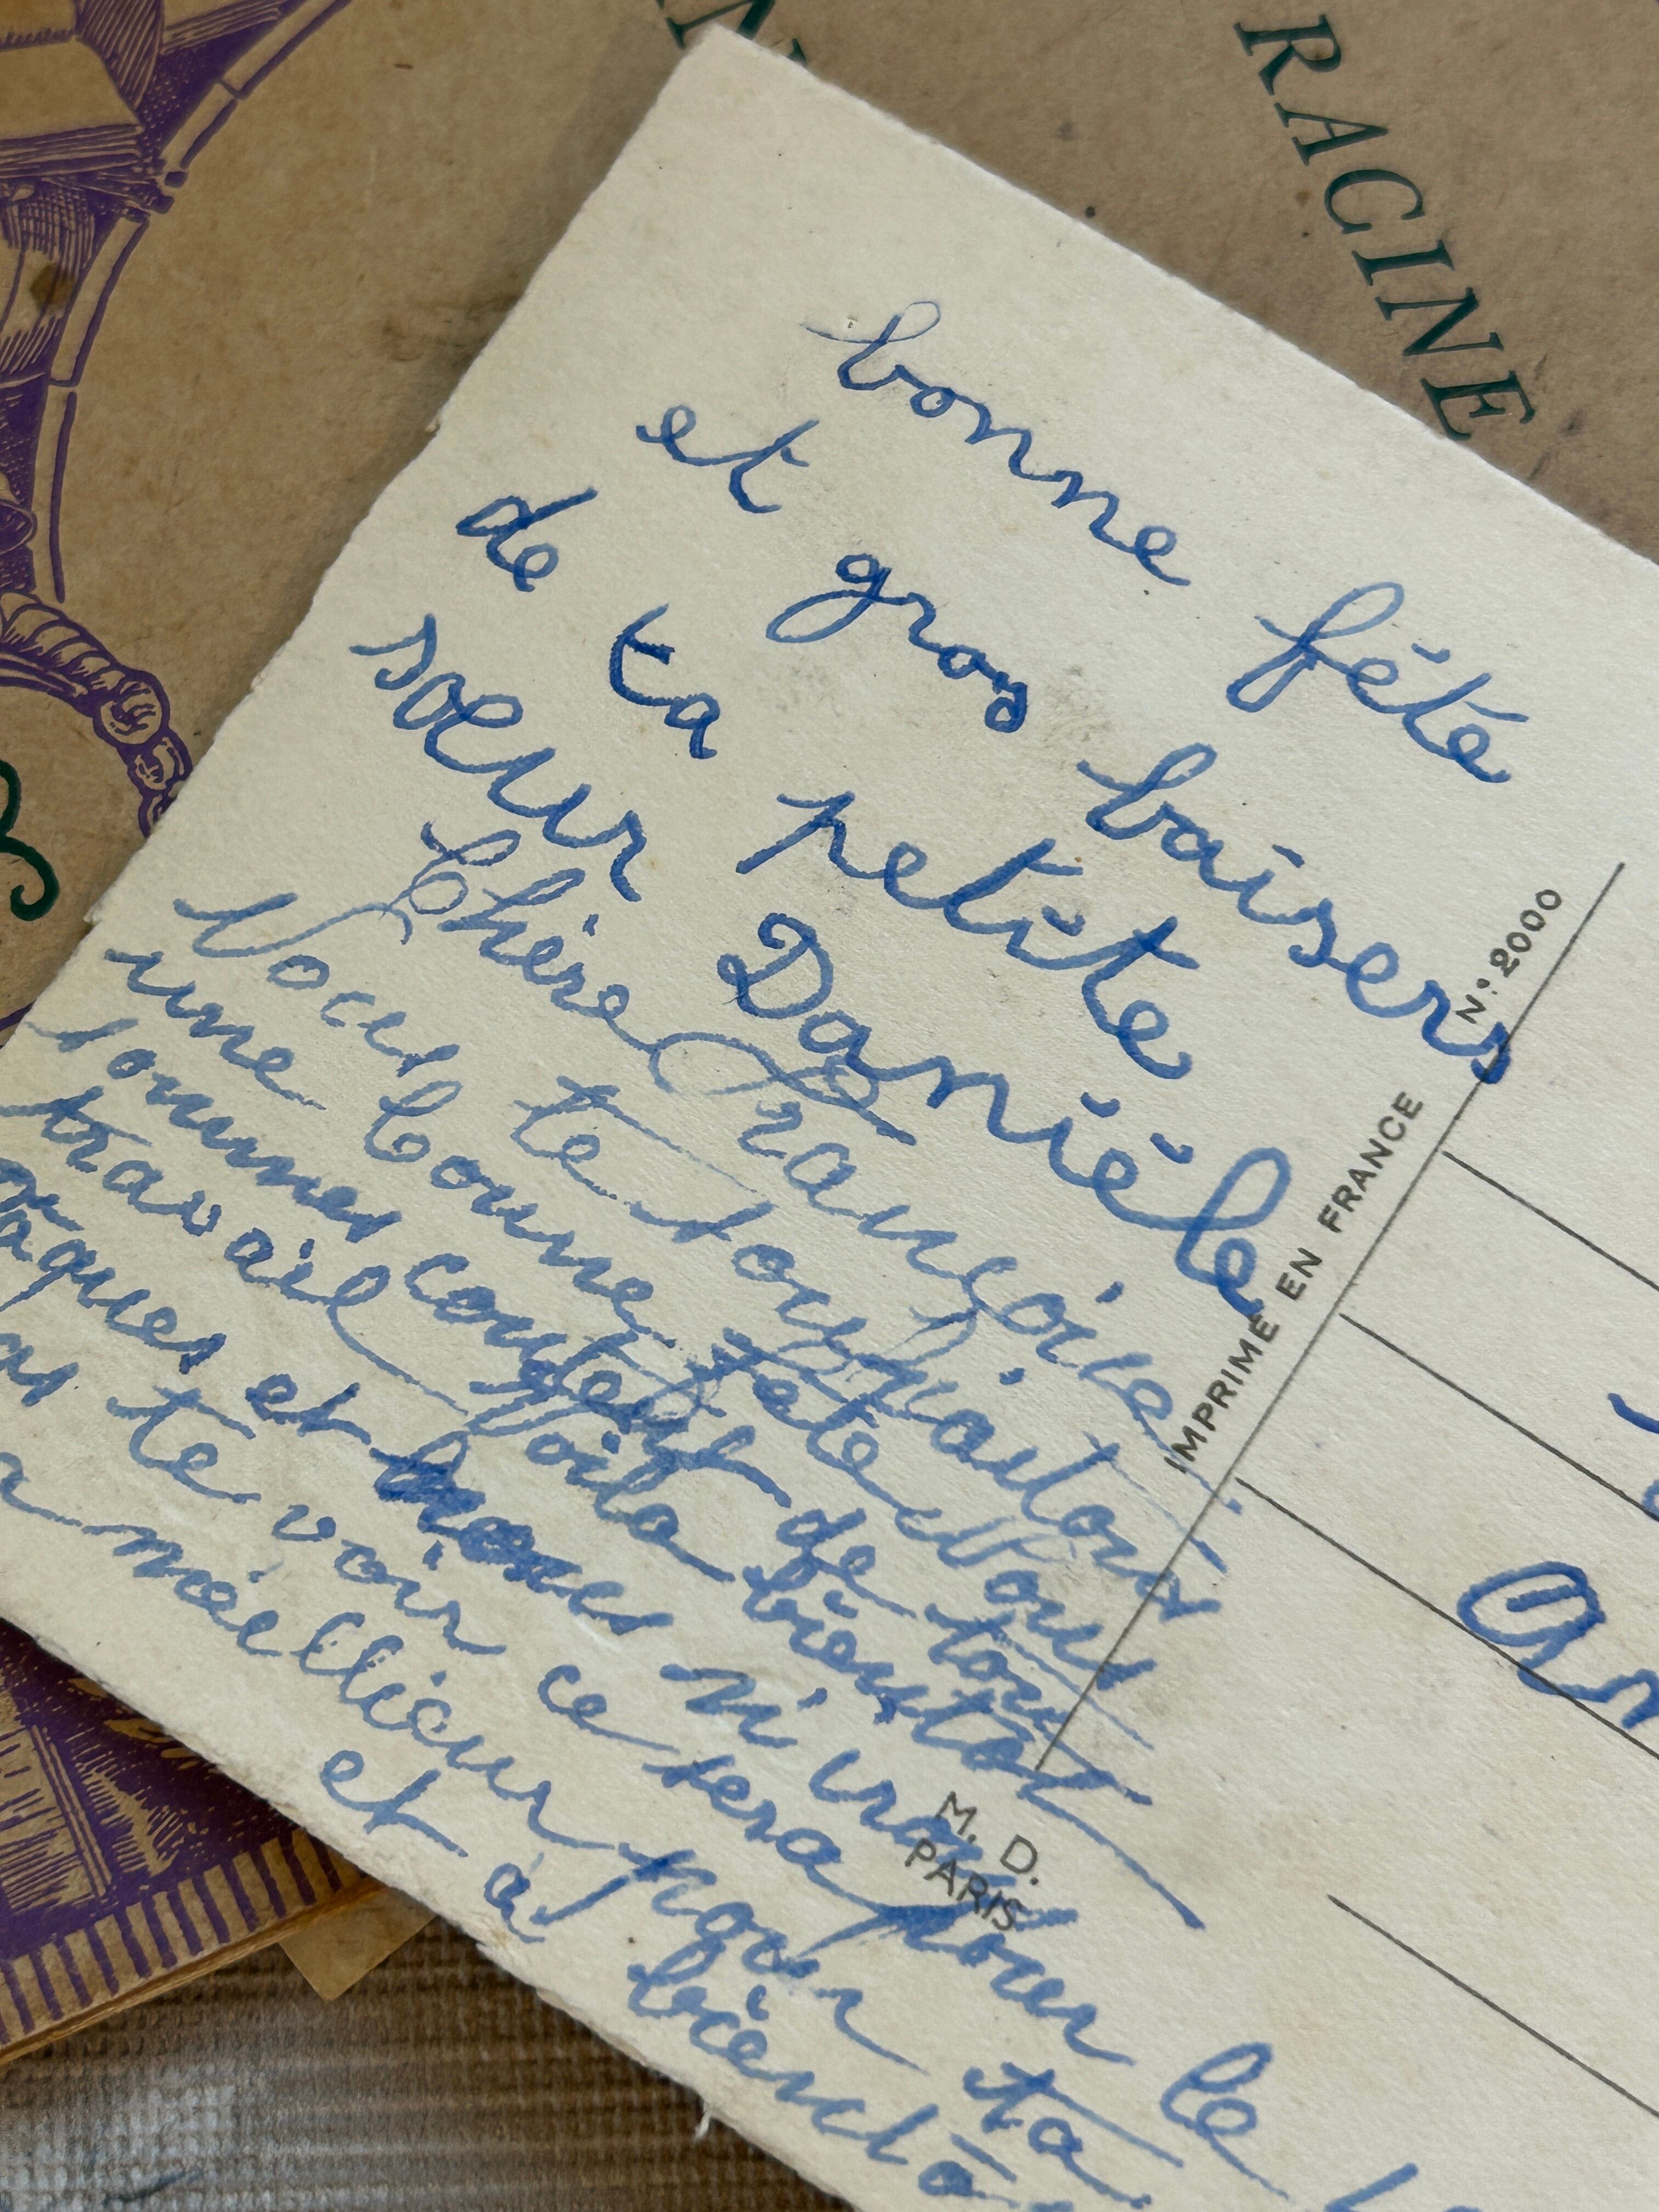 RACINE
bonne fête
et gros baisers
de ta petite
soeur Danièle
Chère Françoise
Nous te souhaitons
une bonne fête Nous
sommes content de ton
travail Voila bientot
et nous si
te voir ce sera pour le
meillieur pour ta
et a bientô
N: 2000
IMPRIME EN FRANCE
M. D.
PARIS